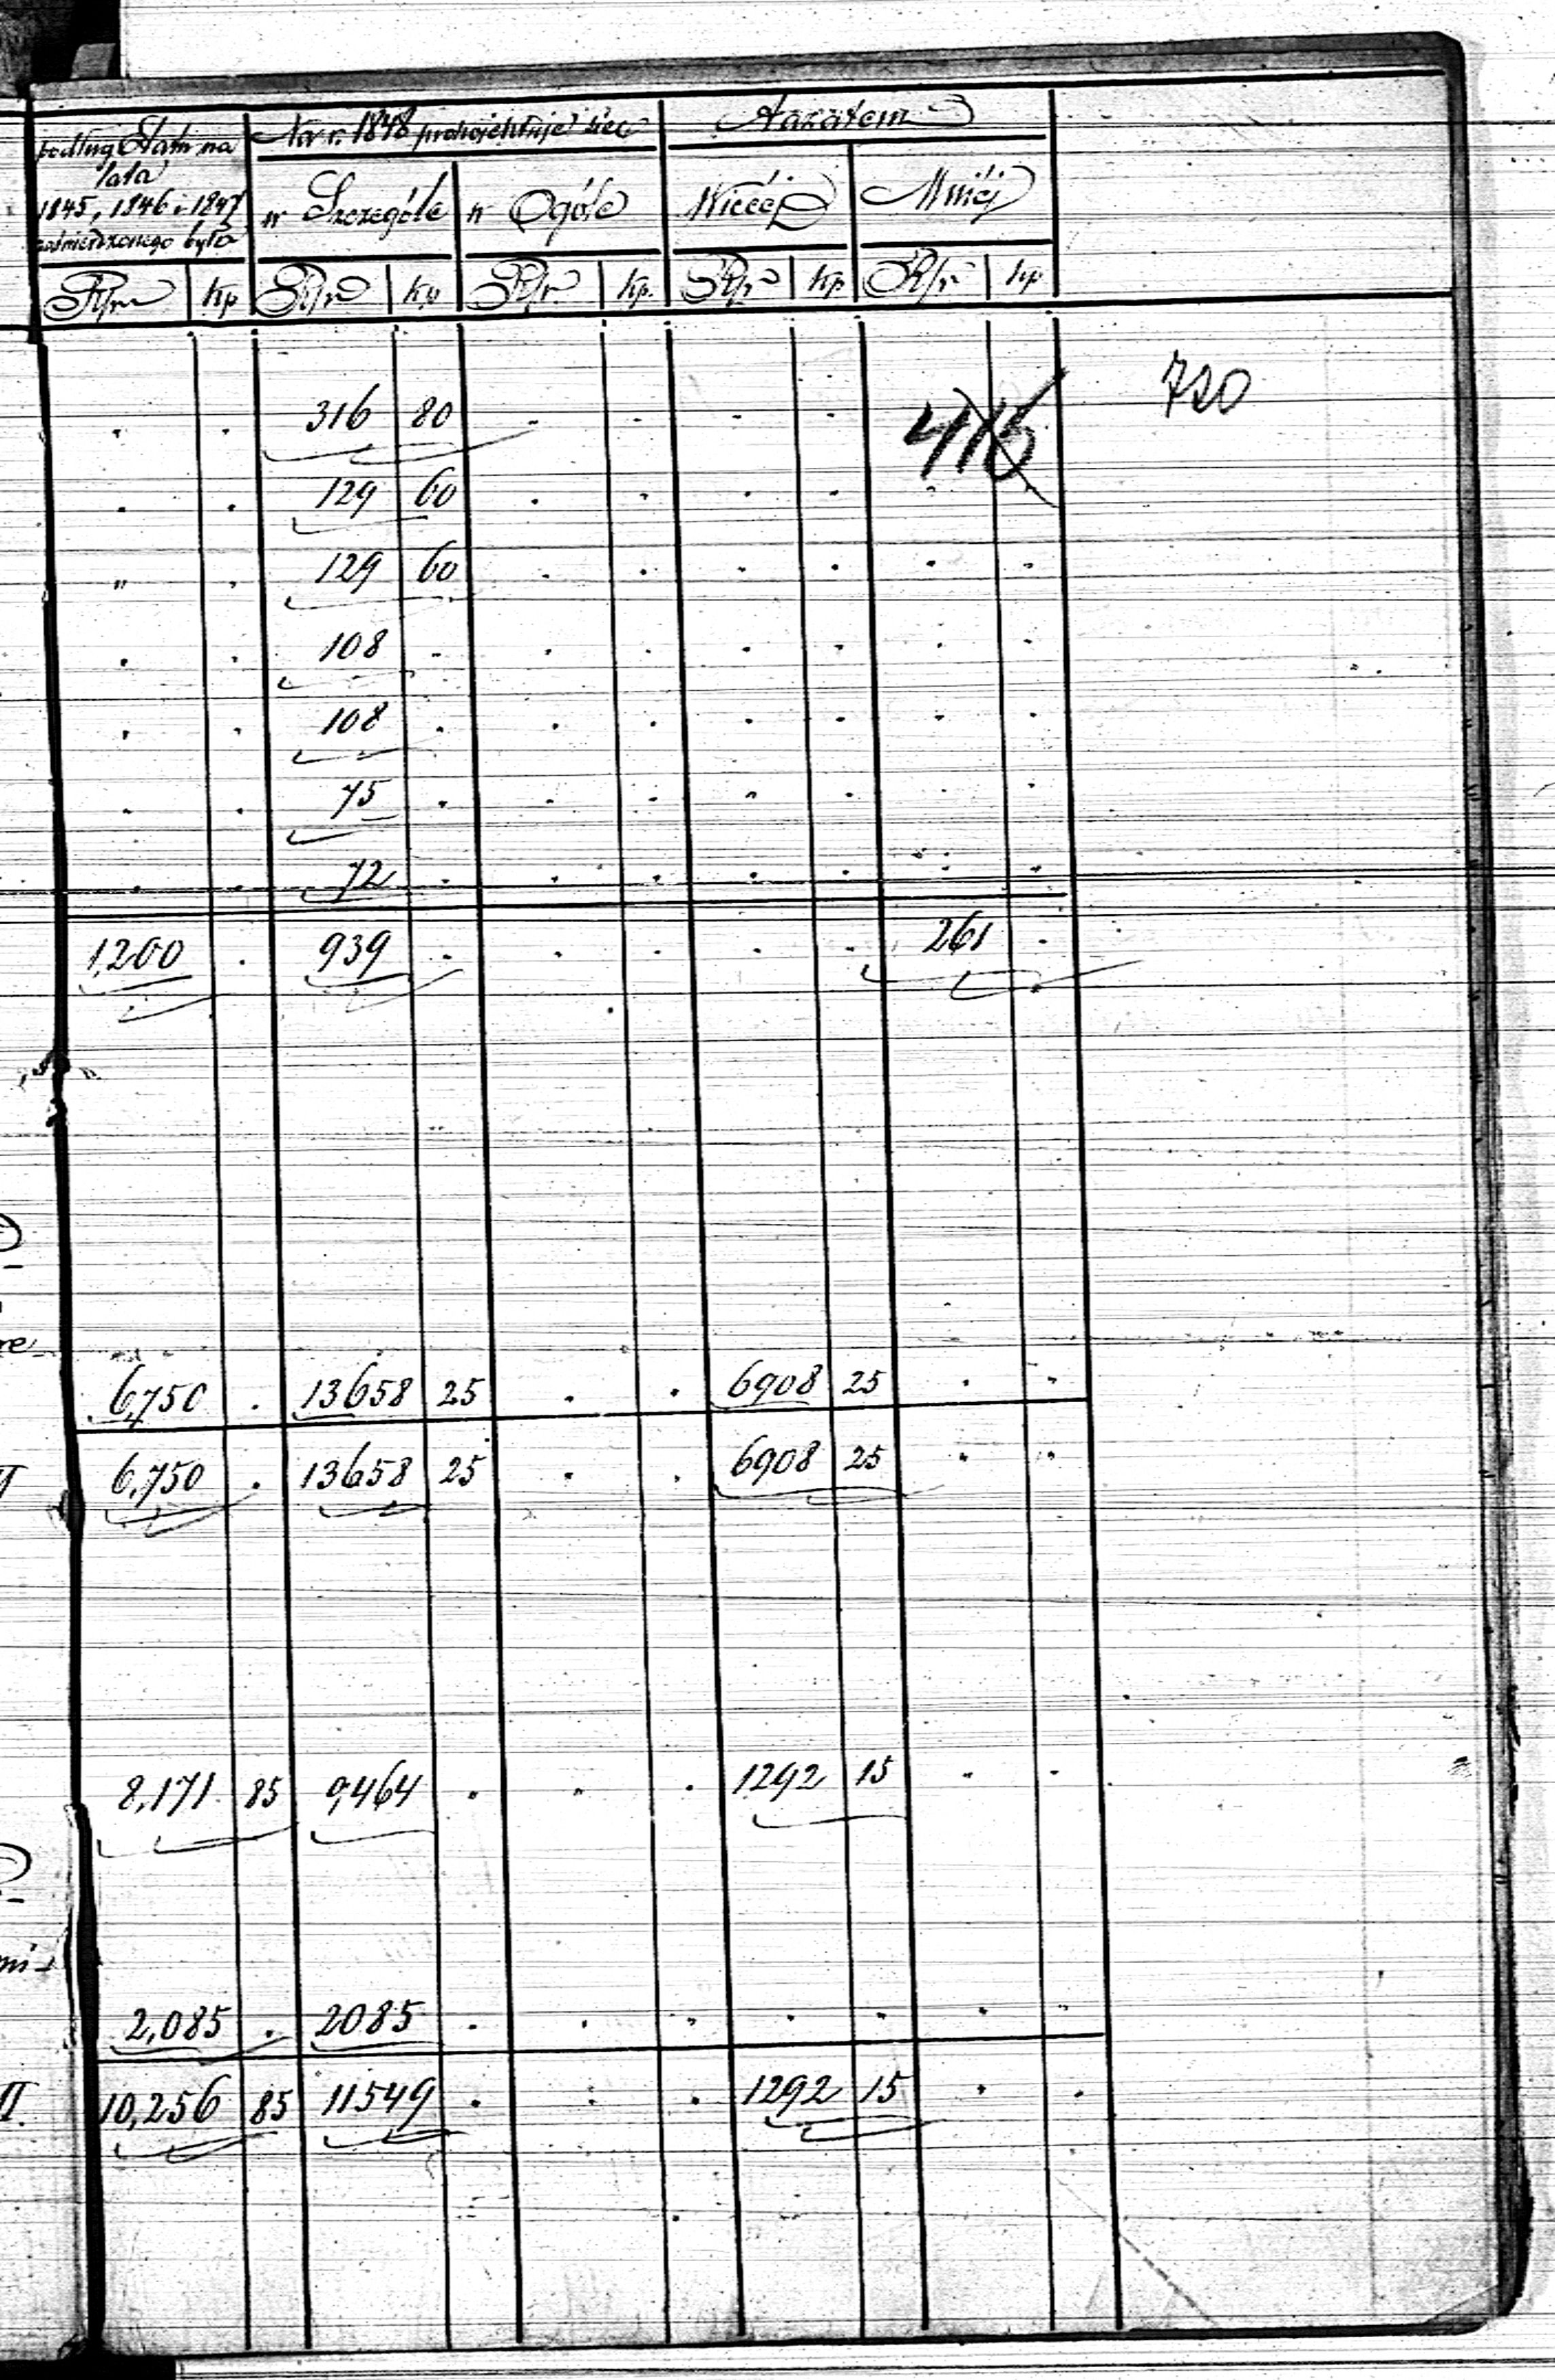 podług Etatu na Na r. 1848 projektuje się A zatem
lata
1845, 1846 i 1847 w Szczególe w Ogóle Więcéj Mniéj
zatwierdzonego było
Rsr Kp Rsr Kp Rsr Kp. Rsr Kp Rsr Kp
720
316 80 415
129 60
" 129 60
108
108
75
72
1,200 939 261
6,750 13658 25 6908 25
6,750 13658 25 6908 25
8,171 85 9,464 1292 15
2,085 2085
II. 10,256 85 11549 1292 15